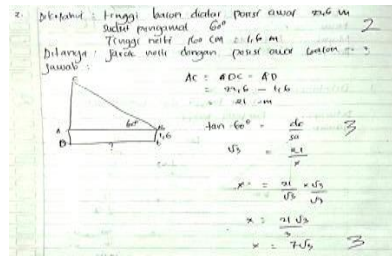 2. Diketahui : tinggi balon diatas posisi awar 22,6 m
sudut pengamat 60°
2
Tinggi neiki 160 cm = 1,6 m
Ditanya : Jarak neiki dengan posisi awar balon = ?
Jawab :
AC = DC - AD
= 22,6 - 1,6
= 21 m
C
A
60°
B
1,6
D
?
tan 60° =
3
√3 = 21/x
x = 21/√3 × √3/√3
x = 21√3/3
x = 7√3
3